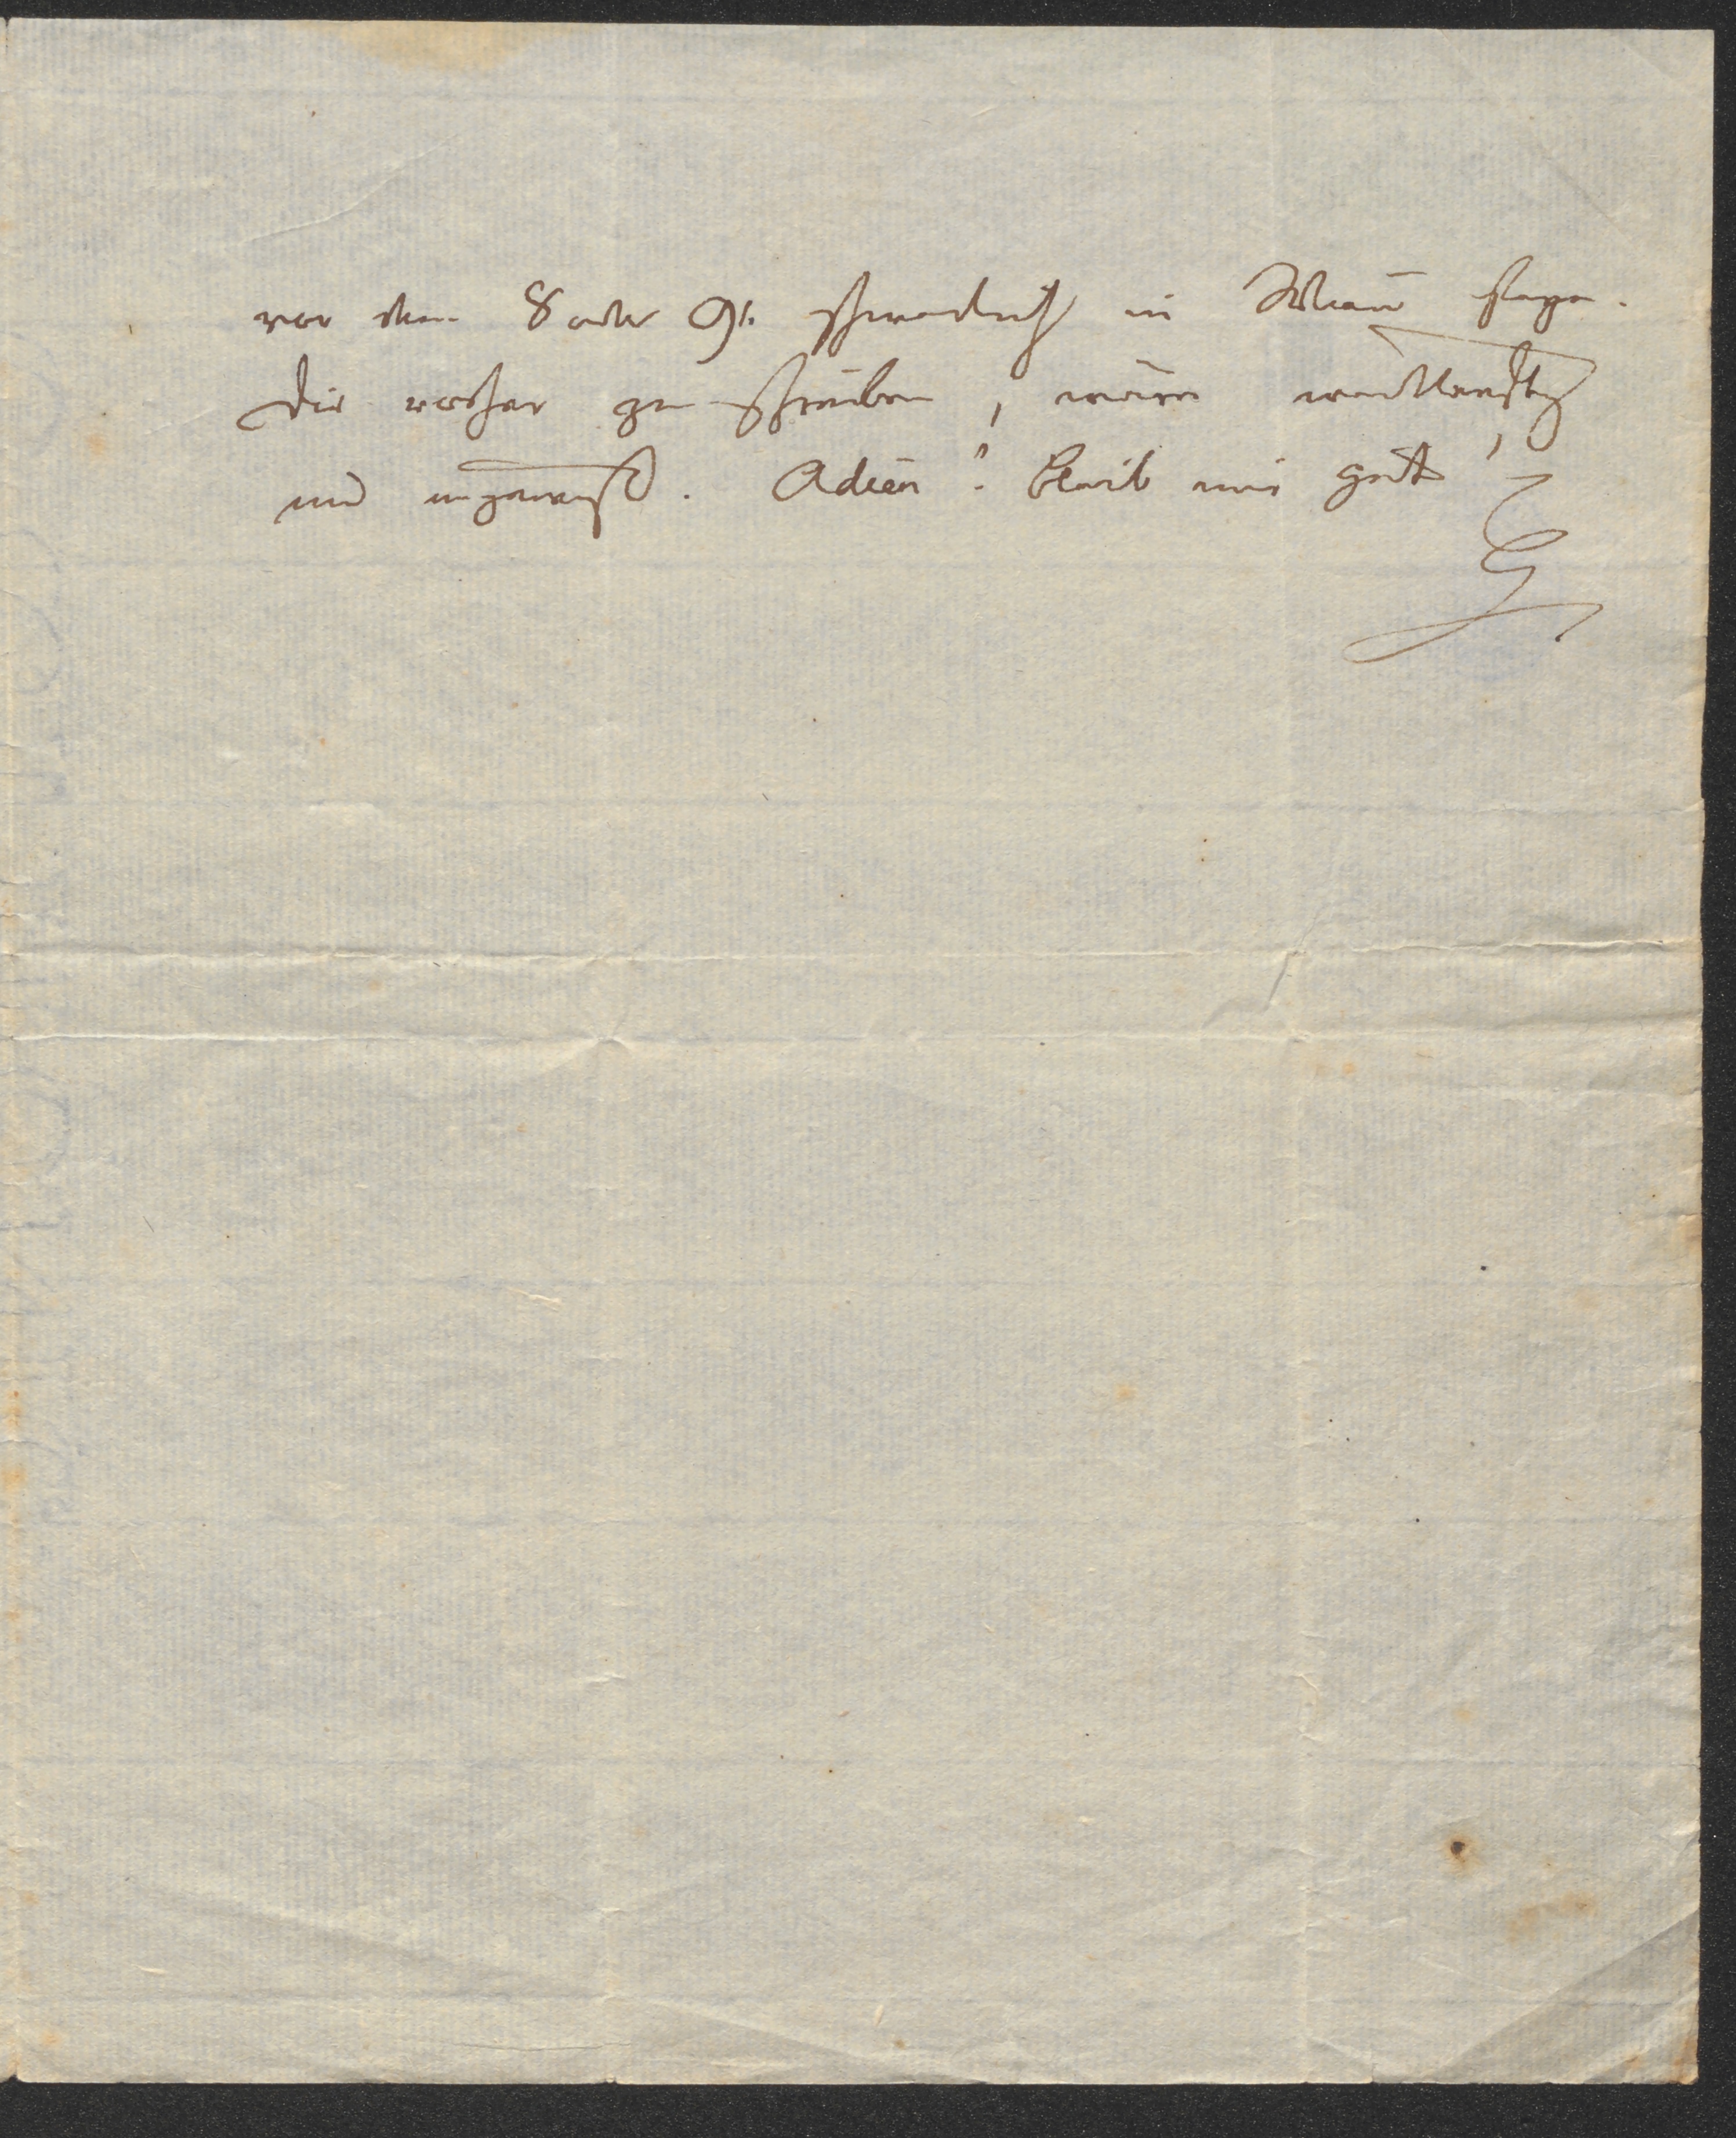 vor dem 8 oder 9t. schwerlich in Wien seyn.
Dir vorher zu schreiben, wäre weitläufig
und ungewiß. Adieu! bleib mir gut